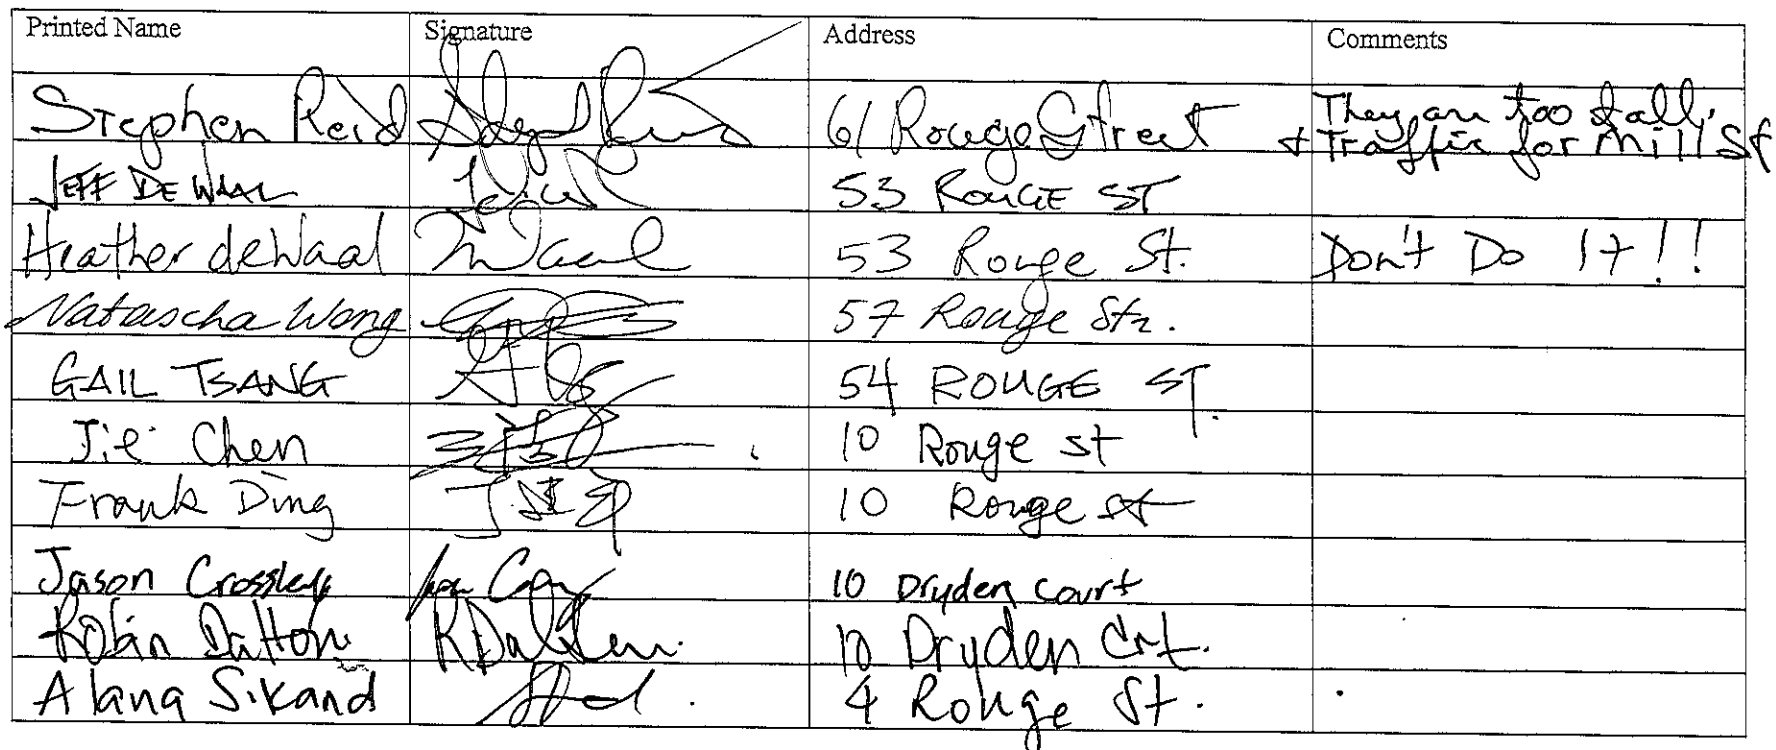 Printed Name Signature Address Comments
Stephen Reid 61 Rouge Street They are too tall,
+ Traffic for Mill St
JEFF DE WAAL 53 ROUGE ST
Heather deWaal 53 Rouge St. Don't Do It!!
Natascha Wong 57 Rouge Str.
GAIL TSANG 54 ROUGE ST.
Jie Chen 10 Rouge st
Frank Ding 10 Rouge st
Jason Crossley 10 Dryden court
Robin Dalton RDalton. 10 Dryden Crt.
Alana Sikand 4 Rouge St.